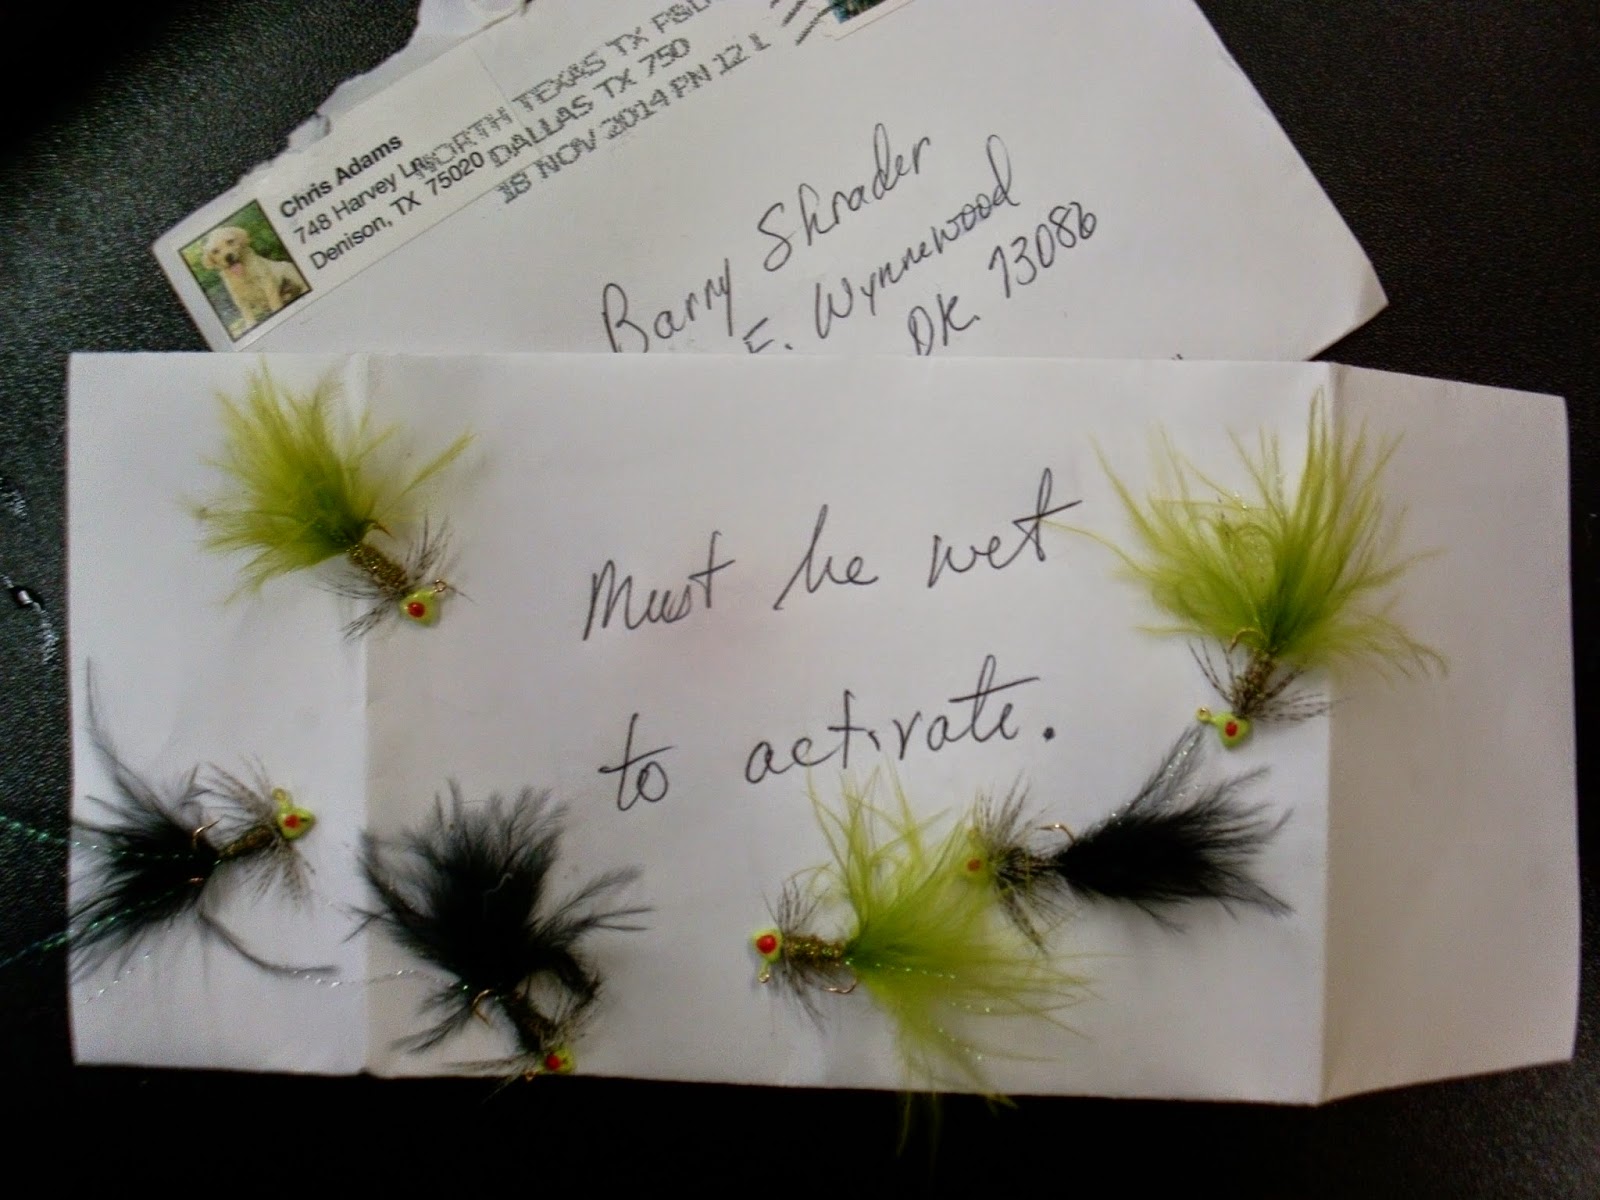 Chris Adams
748 Harvey Ln
Denison, TX 75020
NORTH TEXAS TX P&DC
DALLAS TX 750
18 NOV 2014 PM 12 L
Barry Shrader
E. Wynnewood
OK. 73086
Must be wet
to activate.